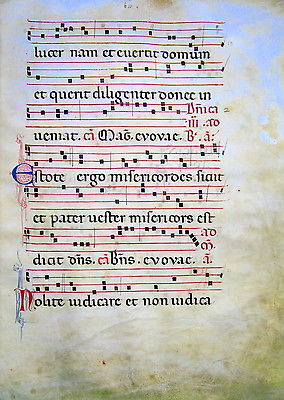 lucer nam et evertit domum
et querit diligenter donec in
Dn̄ica
iii. ad
veniat. cā Mag̅. evovae. B. a̅.
Estote ergo misericordes sicut
et pater vester misericors est
ad
dicit dn̄s. cā Bn̄s. evovae. a̅.
Nolite iudicare et non iudica